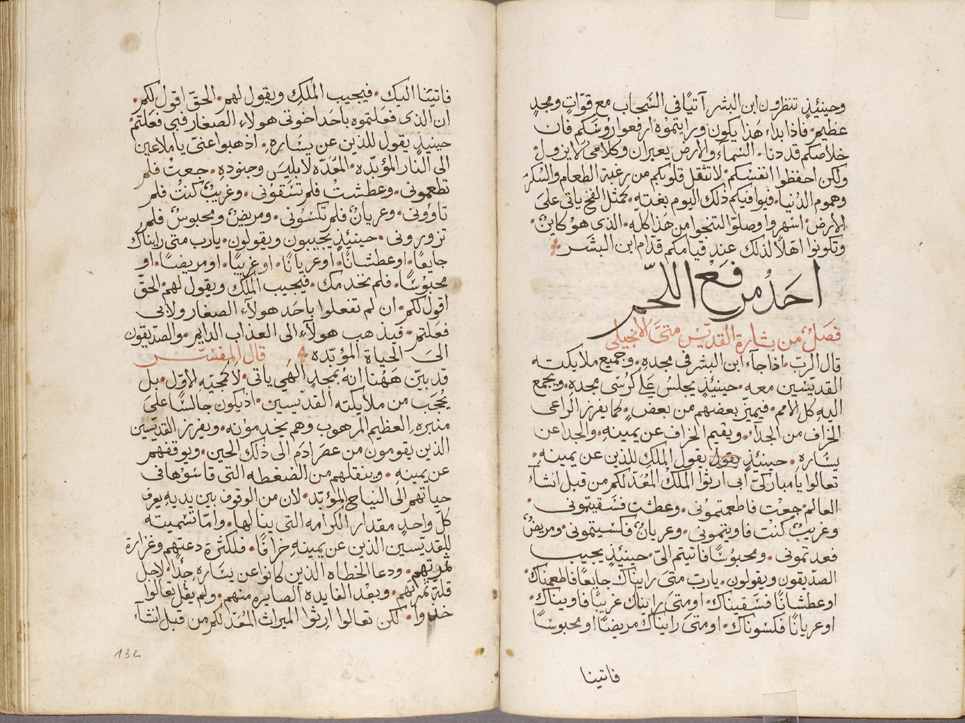 وحينئذٍ تنظرون ابن البشر آتيًا في السَّحاب مع قوّاتٍ ومجدٍ
عظيم • فاذا بداء هذا يكون ورايتموة ارفعوا روسكم فان
خلاصكم قد دنا • السماء والارض يعبران وكلامى لا يزول •
ولكن احفظوا انفسكم • لا تثقل قلوبكم من رغبة الطعام والسكر
وهموم الدنيا • فيوافيكم ذلك اليوم بغتة • كمثل الفخ ياتى على
الارض • اسهروا وصلّوا لتنجوا من هذا كله • الذى هو كاين •
وتكونوا اهلا لذلك عند قيامكم قدام ابن البشر
احد مرفع اللحم
فصلٌ من بشارة القديس متى الانجيلى
قال الرب • اذا جاء ابن البشر فى مجده • وجميع ملايكته
القديسين معه • حينئذٍ يجلس على كرسى مجده • ويجمع
اليه كل الامم • فيميز بعضهم من بعض • كما يفرز الراعى
الخراف من الجداء • ويقيم الخراف عن يمينه • والجدا عن
يساره • حينئذٍ يقول يقول الملك للذين عن يمينه •
تعالوا يا مباركى ابى ارثوا الملك المُعَدّ لكم من قبل انشاء
العالم • جعْت فاطعمتمونى • وعطشت فسقيتمونى
وغريبٌ كنت فاويتمونى • وعريانٌ فكسيتمونى • ومريضٌ
فعدتمونى • ومحبوسًا فاتيتم الىّ • حينيذٍ يجيب
الصديقون ويقولون • يارب متى رايناك جايعًا فاطعمناك •
او عطشانًا فسقيناك • او متى رايناك غريبًا فاويناك •
او عريانًا فكسوناك • او متى رايناك مريضًا او محبوسًا
فاتينا
فاتينا اليك • فيجيب الملك ويقول لهم • الحقّ اقول لكم •
ان الذى فعلتموه باحد اخوتى هولاء الصغار فبى فعلتم
حينيذٍ يقول للذين عن يساره • اذهبوا عنّى يا ملاعين
الى النار المؤبّده • المعدّه لابليس وجنوده • جعت فلم
تطعمونى • وعطشت فلم تسقونى • وغريبٌ كنت فلم
تاوونى • وعريانٌ فلم تكسونى • ومريضٌ ومحبوسٌ فلم
تزورونى • حينيذٍ يجيبون ويقولون • يارب متى رايناك
جايعًا • او عطشانًا • او عريانًا • او غريبًا • او مريضًا • او
محبوسًا • فلم نخدمك • فيجيب الملك ويقول لهم الحقّ
اقول لكم • ان لم تفعلوا باحد هولاء الصغار ولا بى
فعلتم • فيذهب هولاء الى العذاب الدايم • والصديقون
الى الحياة المؤبده قال المفسّر
قد بيّن هٰهنا انه بمجدٍ الٰهىٍ ياتى • لا كمجيه الاول • بل
من ملايكته القديسين • اذ يكون جالسًا على
منبره العظيم المرهوب وهم يخدمونه • ويفرز القديسين
الذين يقومون من عفر ادم الى ذلك الحين • ويوقفهم
عن يمينه • وينقلهم من الضغطه التى قاسوها فى
حياتهم الى النياح المؤبد • لان من الوقوف بين يديه يعرف
كل واحدٍ مقدار الكرامه التى ينالها • وامّا تسميته
للقديسين الذين عن يمينه خرافًا • فلكثرة دعتهم وغزارة
ثمرتهم • ودعا الخطاه الذين كانوا عن يساره جدًا لاجل
قلة ثمرتهم • وبعد الفايده الصايره منهم • ولم يقل تعالوا
خذوا • لكن تعالوا ارثوا الميراث المُعَدّ لكم من قبل انشاء
132